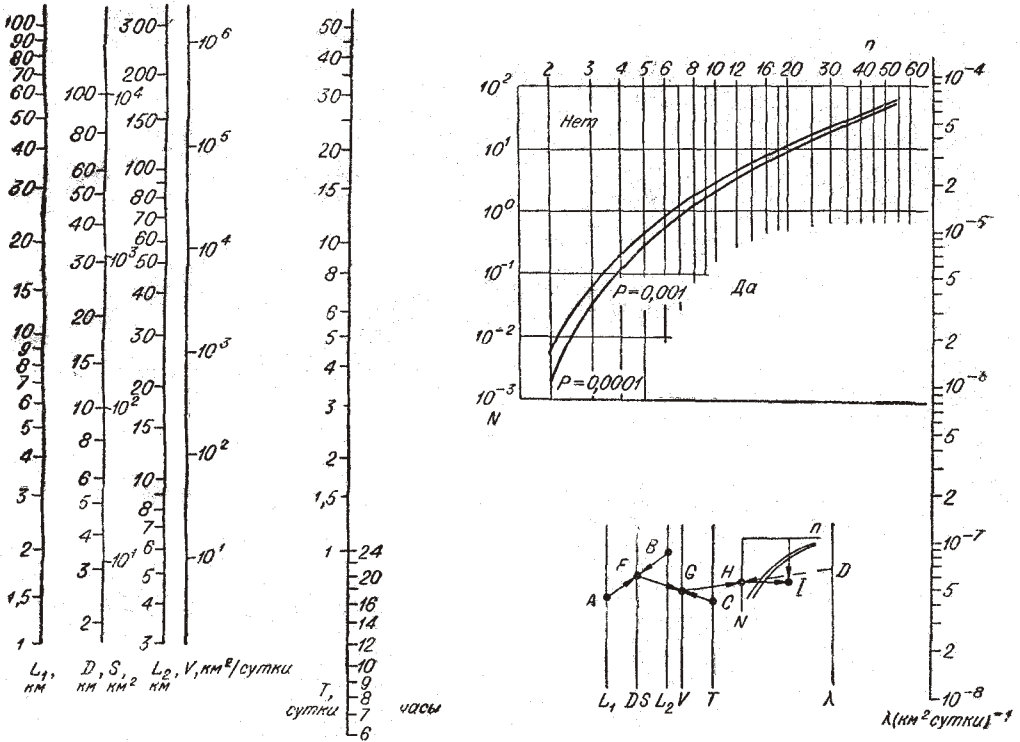 100 90 80 70 60 50 40 30 20 15 10 9 8 7 6 5 4 3 2 1,5 1
L₁, км
100 80 60 50 40 30 20 15 10 8 6 5 4 3 2
D, км
10⁴ 10³ 10² 10¹
S, км²
300 200 150 100 80 70 60 50 40 30 20 15 10 8 7 6 5 4 3
L₂, км
10⁶ 10⁵ 10⁴ 10³ 10² 10¹
V, км²/сутки
50 40 30 20 15 10 8 6 5 4 3 2 1,5 1
T, сутки
24 20 16 14 12 10 9 8 7 6
часы
n
2 3 4 5 6 8 10 12 16 20 30 40 50 60
10² 10¹ 10⁰ 10⁻¹ 10⁻² 10⁻³
N
Нет
Да
P=0,001
P=0,0001
10⁻⁴ 5 2 10⁻⁵ 5 2 10⁻⁶ 5 2 10⁻⁷ 5 2 10⁻⁸
λ(км² сутки)⁻¹
A F B G C H N n I D
L₁ D S L₂ V T λ